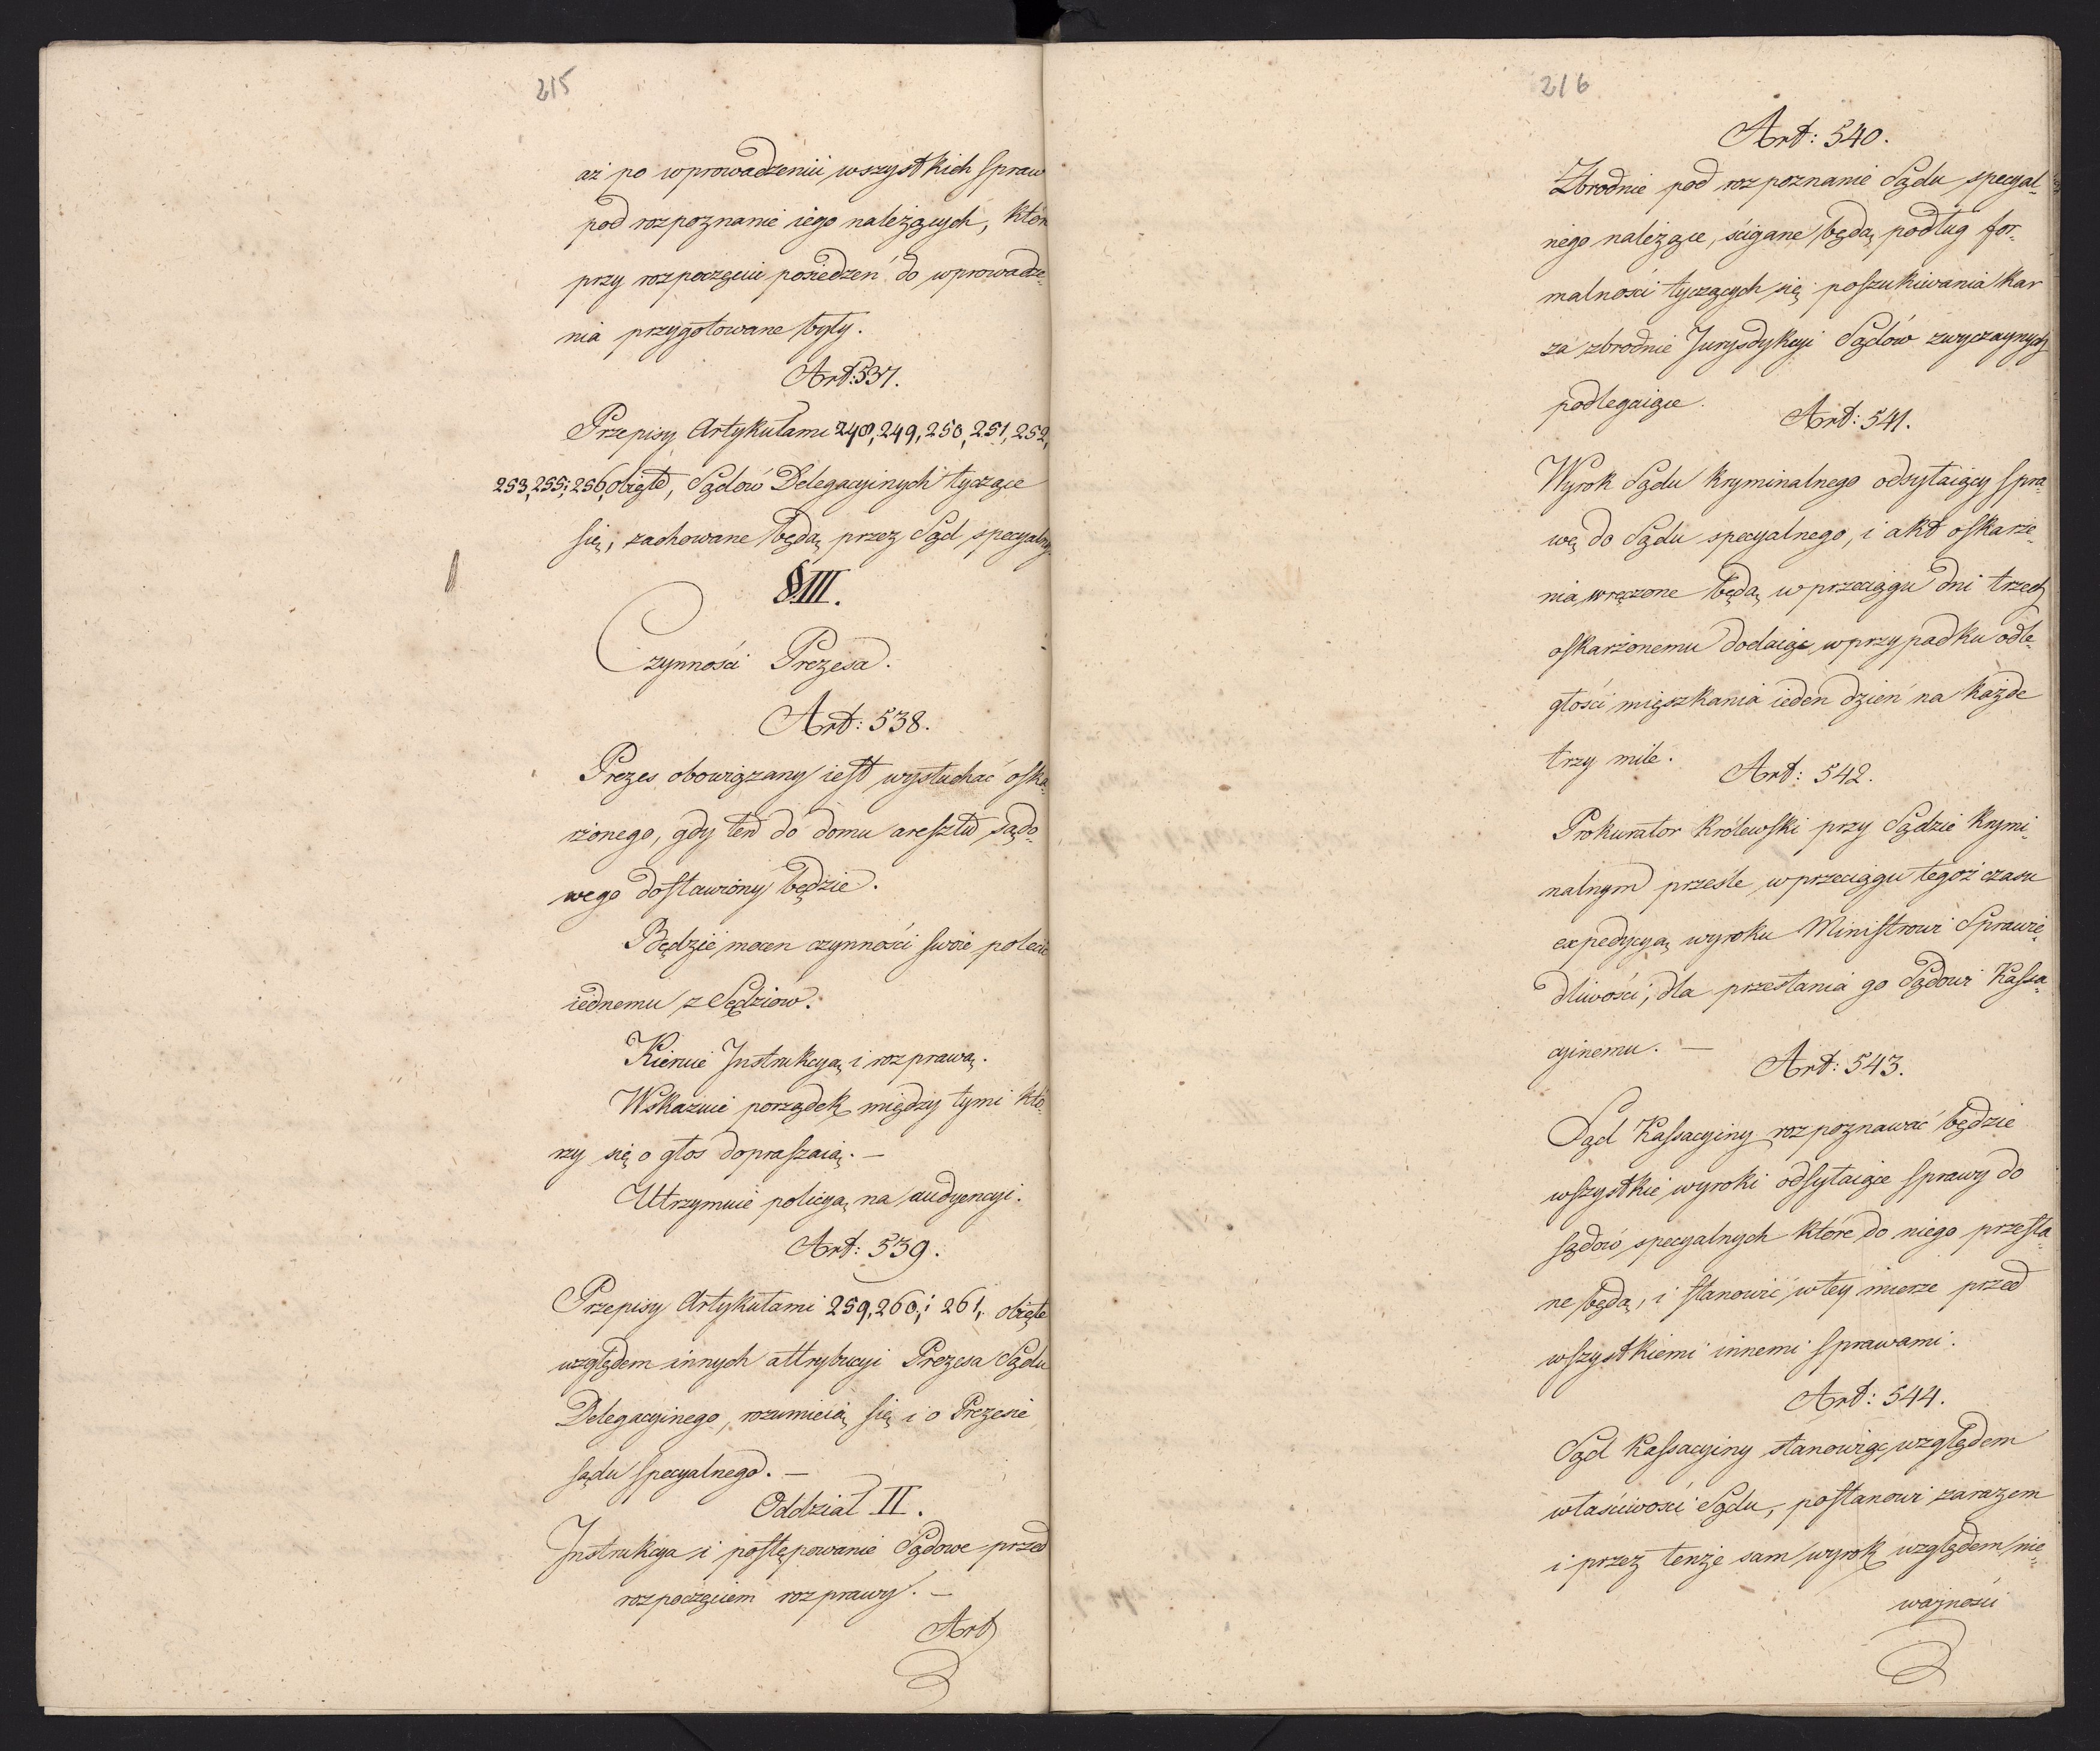 215
aż po wprowadzeniu wszystkich spraw
pod rozpoznanie iego należących, któr
przy rozpoczęciu posiedzeń do wprowadze-
nia przygotowane były.
Art: 537.
Przepisy Artykułami 248, 249, 250, 251, 252,
253, 255, i 256, obięte, Sądów Delegacyinych tyczące
się, zachowane będą przez Sąd specyalny.
§ III.
Czynności Prezesa.
Art: 538.
Prezes obowiązany iest wysłuchać oska-
rżonego, gdy ten do domu aresztu sądo-
wego dostawiony będzie.
Będzie mocen czynności swoie polecić
iednemu z Sędziow.
Kieruie Instrukcyą i rozprawą.
Wskazuie porządek między tymi któ-
rzy się o głos dopraszaią. —
Utrzymuie policyą na audyencyi.
Art: 539.
Przepisy Artykułami 259, 260, i 261, obięte
względem innych attrybucyi Prezesa Sądu
Delegacyinego, rozumieią się i o Prezesie
sądu specyalnego. —
Oddział II.
Instrukcya i postępowanie Sądowe przed
rozpoczęciem rozprawy. —
Art
216
Art: 540.
Zbrodnie pod rozpoznanie Sądu specyal-
nego należące, ścigane będą podług for-
malności tyczących się poszukiwania kar
za zbrodnie Jurysdykcyi Sądów zwyczaynych
podlegaiące.
Art: 541.
Wyrok Sądu kryminalnego odsyłaiący spra-
wę do Sądu specyalnego, i akt oskarże-
nia, wręczone będą w przeciągu dni trzech
oskarżonemu dodaiąc w przypadku odle-
głości mięszkania ieden dzień na każde
trzy mile.
Art: 542.
Prokurator Królewski przy Sądzie krymi-
nalnym prześle w przeciągu tegoż czasu
expedycyą wyroku Ministrowi Sprawie-
dliwości, dla przesłania go Sądowi Kassa-
cyinemu. —
Art: 543.
Sąd Kassacyiny rozpoznawać będzie
wszystkie wyroki odsyłaiące sprawy do
sądów specyalnych które do niego przesła-
ne będą, i stanowić w tey mierze przed
wszystkiemi innemi sprawami.
Art: 544.
Sąd Kassacyiny stanowiąc względem
właściwości Sądu, postanowi zarazem
i przez tenże sam wyrok względem nie-
ważności